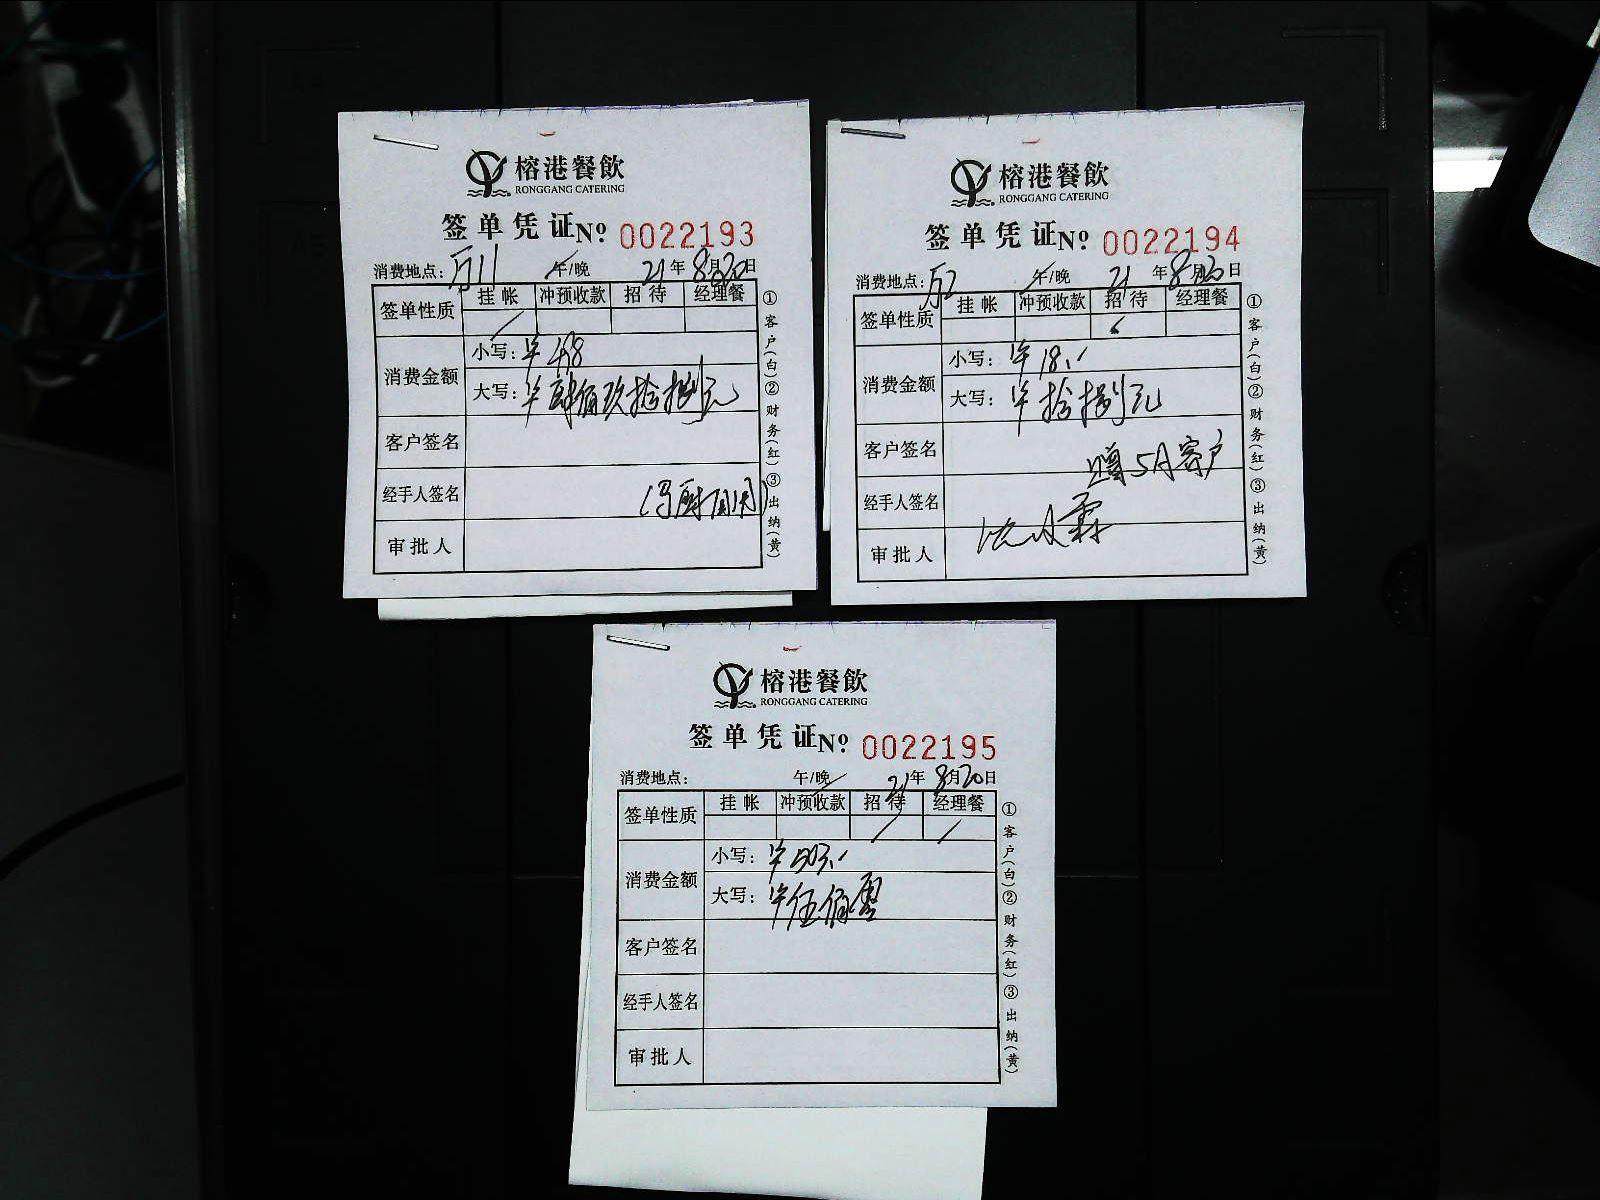 榕港餐飲
RONGGANG CATERING
签单凭证№ 0022193
消费地点: 万11 午/晚 21年8月20日
签单性质 挂帐 冲预收款 招待 经理餐
消费金额
小写: ¥498
大写: ¥肆佰玖拾捌元
客户签名
经手人签名
审批人
①客户(白)②财务(红)③出纳(黄)
榕港餐飲
RONGGANG CATERING
签单凭证№ 0022194
消费地点: 万2 午/晚 21年8月20日
签单性质 挂帐 冲预收款 招待 经理餐
消费金额
小写: ¥18.
大写: ¥拾捌元
客户签名
赠5A客户
经手人签名
审批人
①客户(白)②财务(红)③出纳(黄)
榕港餐飲
RONGGANG CATERING
签单凭证№ 0022195
消费地点: 午/晚 21年8月20日
签单性质 挂帐 冲预收款 招待 经理餐
消费金额
小写: ¥503.
大写: ¥伍佰零
客户签名
经手人签名
审批人
①客户(白)②财务(红)③出纳(黄)